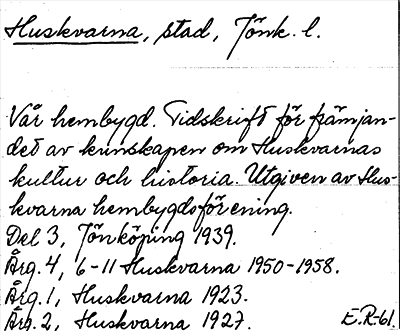 Huskvarna, stad, Jönk. l.
Vår hembygd. Tidskrift för främjan-
det av kunskapen om Huskvarnas
kultur och historia. Utgiven av Hus-
kvarna hembygdsförening.
Del 3, Jönköping 1939.
Årg. 4, 6-11 Huskvarna 1950-1958.
Årg. 1, Huskvarna 1923.
Årg. 2, Huskvarna 1927. E.R-61.